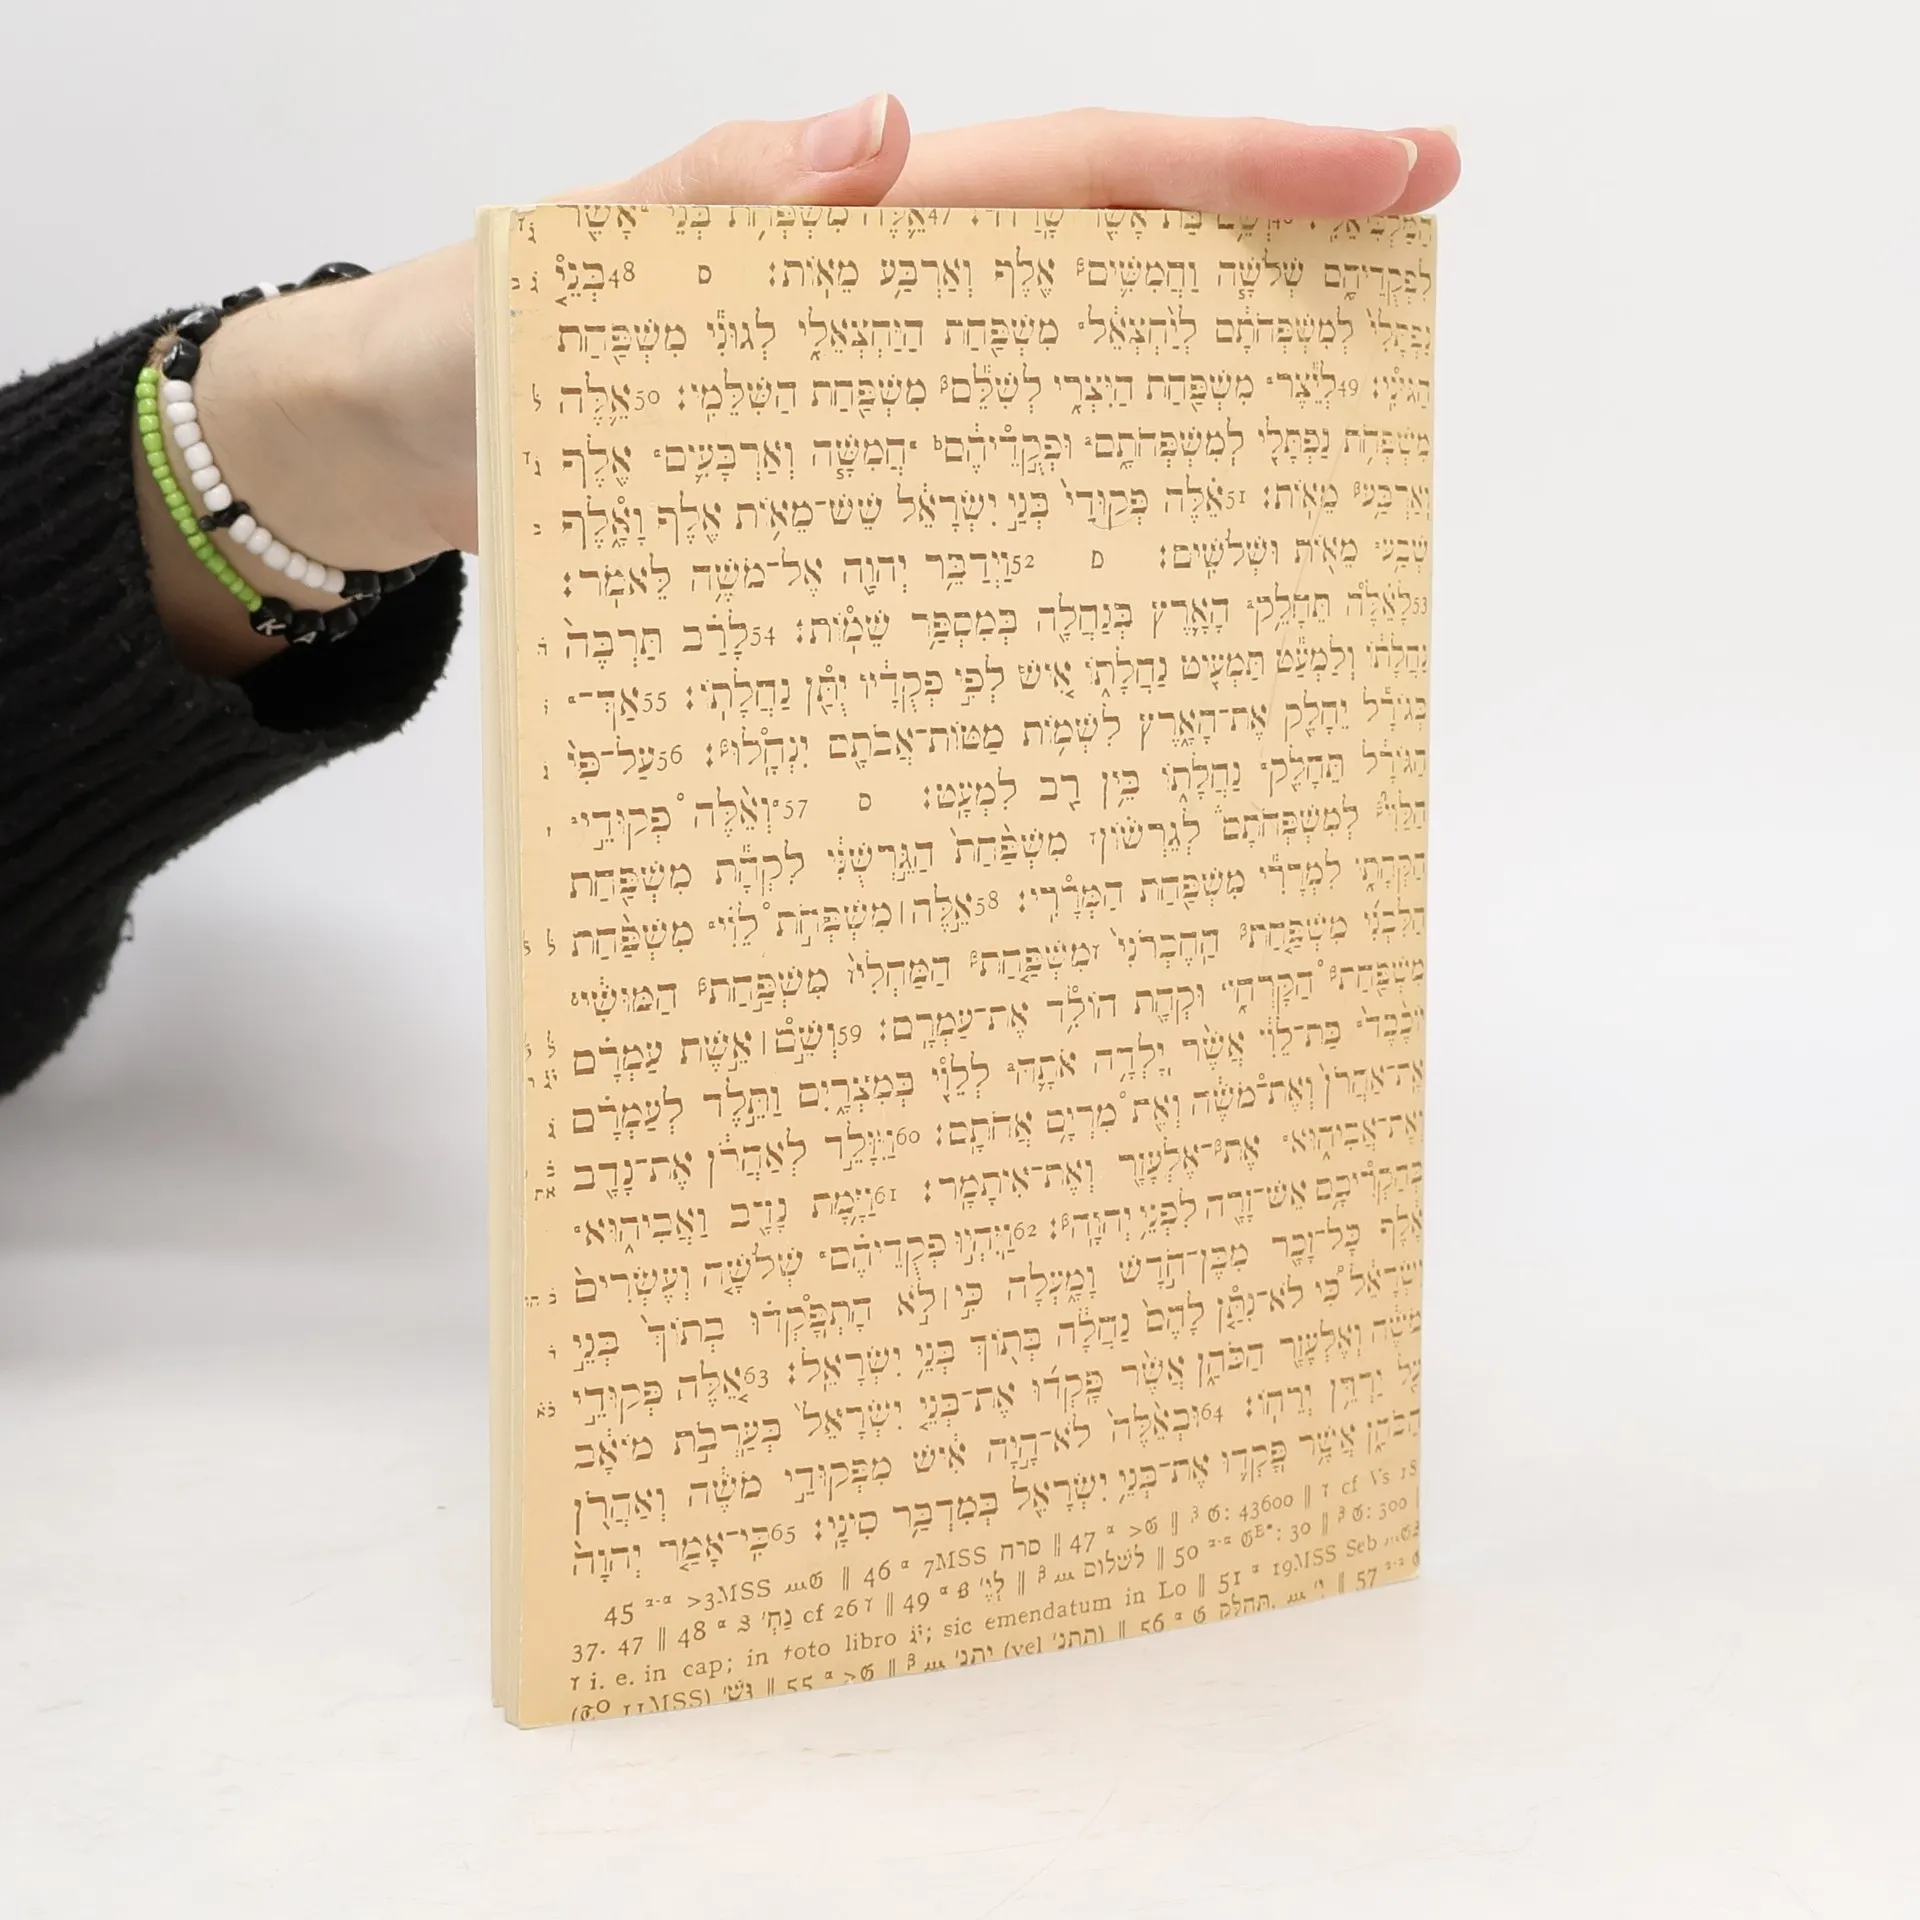 47אֵלֶּה מִשְׁפְּחֹת בְּנֵי־אָשֵׁר
לִפְקֻדֵיהֶם שְׁלֹשָׁה וַחֲמִשִּׁים אֶלֶף וְאַרְבַּע מֵאוֹת׃ ס 48בְּנֵי
נַפְתָּלִי לְמִשְׁפְּחֹתָם לְיַחְצְאֵל מִשְׁפַּחַת הַיַּחְצְאֵלִי לְגוּנִי מִשְׁפַּחַת
הַגּוּנִי׃ 49לְיֵצֶר מִשְׁפַּחַת הַיִּצְרִי לְשִׁלֵּם מִשְׁפַּחַת הַשִּׁלֵּמִי׃ 50אֵלֶּה
מִשְׁפְּחֹת נַפְתָּלִי לְמִשְׁפְּחֹתָם וּפְקֻדֵיהֶם חֲמִשָּׁה וְאַרְבָּעִים אֶלֶף
וְאַרְבַּע מֵאוֹת׃ 51אֵלֶּה פְּקוּדֵי בְּנֵי יִשְׂרָאֵל שֵׁשׁ־מֵאוֹת אֶלֶף וָאָלֶף
שְׁבַע מֵאוֹת וּשְׁלֹשִׁים׃ ס 52וַיְדַבֵּר יְהוָה אֶל־מֹשֶׁה לֵּאמֹר׃
53לָאֵלֶּה תֵּחָלֵק הָאָרֶץ בְּנַחֲלָה בְּמִסְפַּר שֵׁמוֹת׃ 54לָרַב תַּרְבֶּה
נַחֲלָתוֹ וְלַמְעַט תַּמְעִיט נַחֲלָתוֹ אִישׁ לְפִי פְקֻדָיו יֻתַּן נַחֲלָתוֹ׃ 55אַךְ־
בְּגוֹרָל יֵחָלֵק אֶת־הָאָרֶץ לִשְׁמוֹת מַטּוֹת־אֲבֹתָם יִנְחָלוּ׃ 56עַל־פִּי
הַגּוֹרָל תֵּחָלֵק נַחֲלָתוֹ בֵּין רַב לִמְעָט׃ ס 57וְאֵלֶּה פְקוּדֵי
הַלֵּוִי לְמִשְׁפְּחֹתָם לְגֵרְשׁוֹן מִשְׁפַּחַת הַגֵּרְשֻׁנִּי לִקְהָת מִשְׁפַּחַת
הַקְּהָתִי לִמְרָרִי מִשְׁפַּחַת הַמְּרָרִי׃ 58אֵלֶּה מִשְׁפְּחֹת לֵוִי מִשְׁפַּחַת
הַלִּבְנִי מִשְׁפַּחַת הַחֶבְרֹנִי מִשְׁפַּחַת הַמַּחְלִי מִשְׁפַּחַת הַמּוּשִׁי
מִשְׁפַּחַת הַקָּרְחִי וּקְהָת הוֹלִד אֶת־עַמְרָם׃ 59וְשֵׁם אֵשֶׁת עַמְרָם
יוֹכֶבֶד בַּת־לֵוִי אֲשֶׁר יָלְדָה אֹתָהּ לְלֵוִי בְּמִצְרָיִם וַתֵּלֶד לְעַמְרָם
אֶת־אַהֲרֹן וְאֶת־מֹשֶׁה וְאֵת מִרְיָם אֲחֹתָם׃ 60וַיִּוָּלֵד לְאַהֲרֹן אֶת־נָדָב
וְאֶת־אֲבִיהוּא אֶת־אֶלְעָזָר וְאֶת־אִיתָמָר׃ 61וַיָּמָת נָדָב וַאֲבִיהוּא
בְּהַקְרִיבָם אֵשׁ־זָרָה לִפְנֵי יְהוָה׃ 62וַיִּהְיוּ פְקֻדֵיהֶם שְׁלֹשָׁה וְעֶשְׂרִים
אֶלֶף כָּל־זָכָר מִבֶּן־חֹדֶשׁ וָמָעְלָה כִּי לֹא הָתְפָּקְדוּ בְּתוֹךְ בְּנֵי
יִשְׂרָאֵל כִּי לֹא־נִתַּן לָהֶם נַחֲלָה בְּתוֹךְ בְּנֵי יִשְׂרָאֵל׃ 63אֵלֶּה פְּקוּדֵי
מֹשֶׁה וְאֶלְעָזָר הַכֹּהֵן אֲשֶׁר פָּקְדוּ אֶת־בְּנֵי יִשְׂרָאֵל בְּעַרְבֹת מוֹאָב
עַל יַרְדֵּן יְרֵחוֹ׃ 64וּבְאֵלֶּה לֹא־הָיָה אִישׁ מִפְּקוּדֵי מֹשֶׁה וְאַהֲרֹן
הַכֹּהֵן אֲשֶׁר פָּקְדוּ אֶת־בְּנֵי יִשְׂרָאֵל בְּמִדְבַּר סִינָי׃ 65כִּי־אָמַר יְהוָה
45 ᵃ⁻ᵃ >3MSS ⅏𝔊 ‖ 46 ᵃ 7MSS סרח ‖ 47 ᵃ >𝔊 ‖ ᵝ 𝔊: 43600 ‖ ᵞ cf Vs 18
37. 47 ‖ 48 ᵃ 𝔖 נַחְ׳ cf 26 ᵞ ‖ 49 ᵃ ‖ ᵝ ⅏ לשלום ‖ 50 ᵃ⁻ᵃ 𝔊ᴮ*: 30 ‖ ᵝ 𝔊: 300
ᵞ i. e. in cap; in toto libro; sic emendatum in Lo ‖ 51 ᵃ 19MSS Seb ⅏𝔊
(𝔗ᴼ 11MSS) ‖ 55 ᵃ >𝔊 ‖ ᵝ ⅏ יתנ׳ (vel תתנ׳) ‖ 56 ᵃ 𝔊 תחלק, ⅏ ‖ 57 ᵃ⁻ᵃ
K A